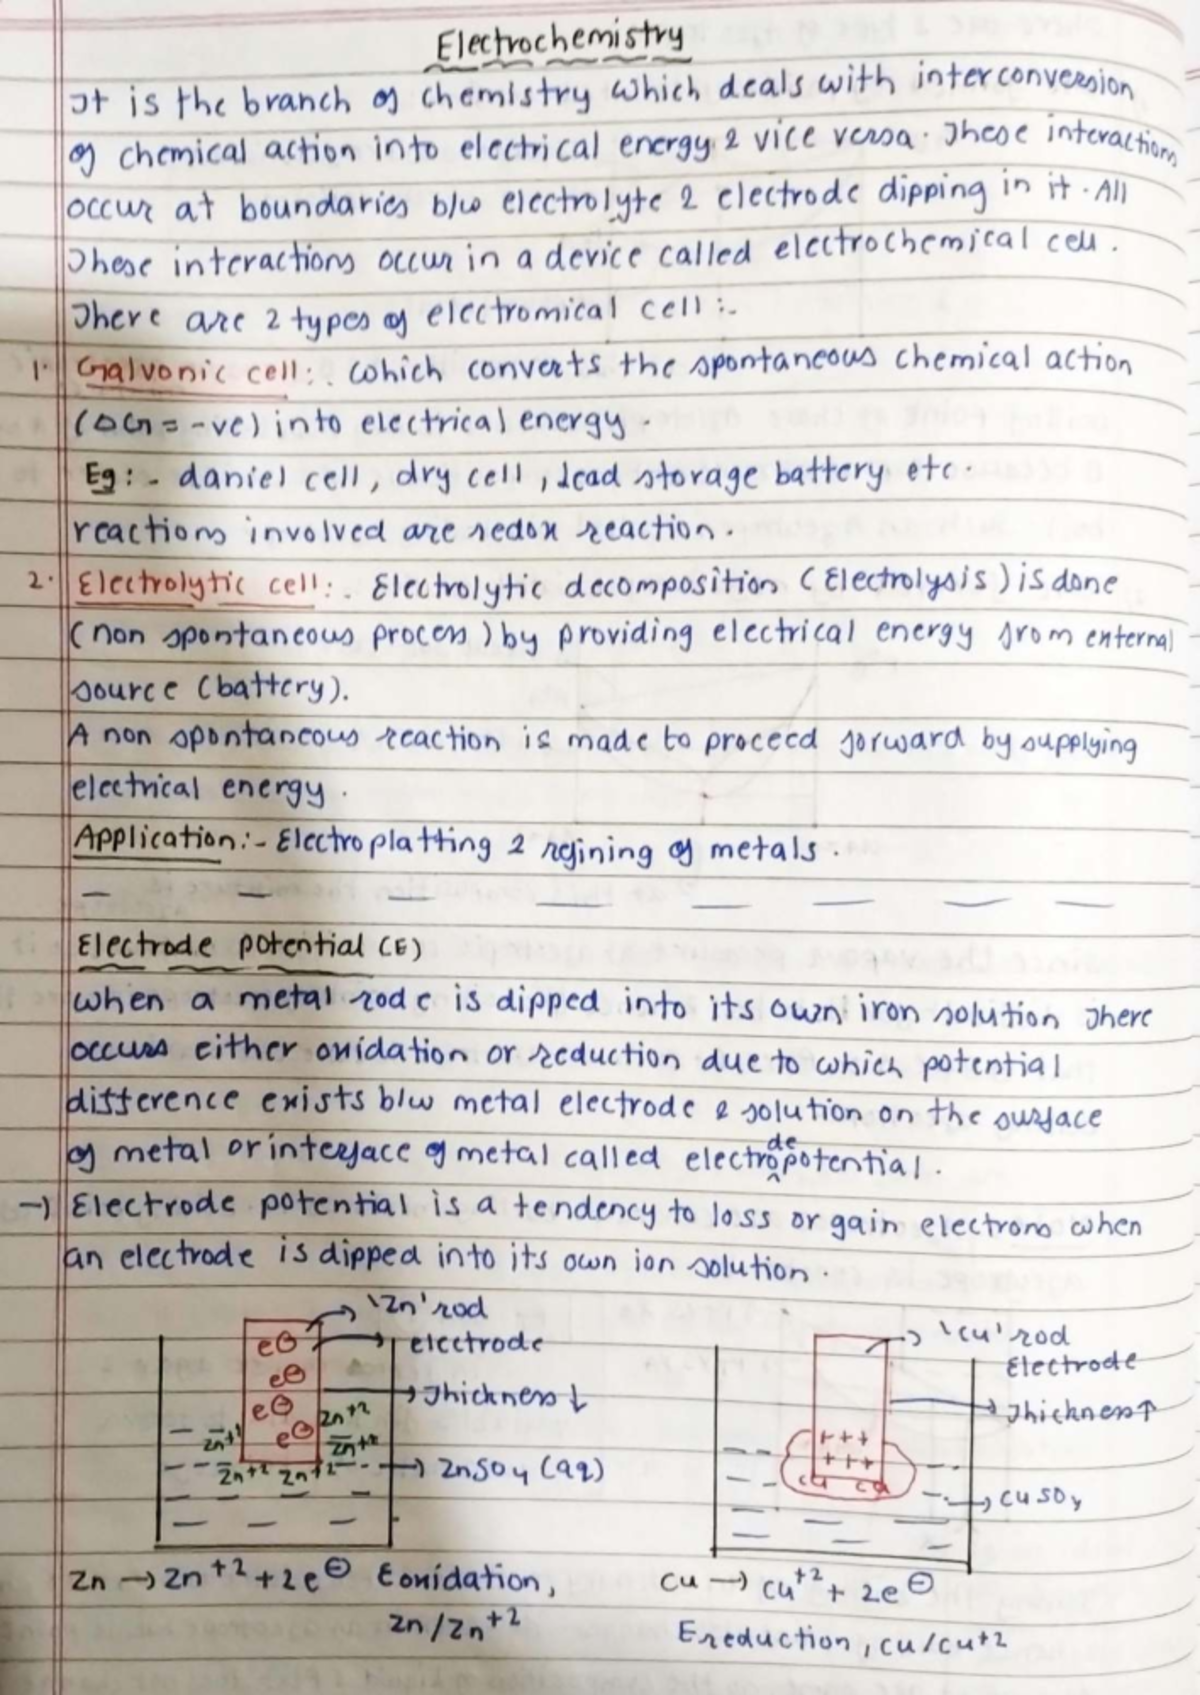 Electrochemistry
It is the branch of chemistry which deals with interconversion
of chemical action into electrical energy & vice versa. These interactions
occur at boundaries b/w electrolyte & electrode dipping in it. All
These interactions occur in a device called electrochemical cell.
There are 2 types of electromical cell :-
1. Galvonic cell:- Which converts the spontaneous chemical action
(ΔG = -ve) into electrical energy.
Eg:- daniel cell, dry cell, lead storage battery etc.
reactions involved are redox reaction.
2. Electrolytic cell:- Electrolytic decomposition (Electrolysis) is done
(non spontaneous process) by providing electrical energy from external
source (battery).
A non spontaneous reaction is made to proceed forward by supplying
electrical energy.
Application:- Electroplatting & refining of metals.
Electrode potential (E)
when a metal rode is dipped into its own iron solution There
occurs either oxidation or reduction due to which potential
difference exists b/w metal electrode & solution on the surface
of metal or interface of metal called electrodepotential.
→ Electrode potential is a tendency to loss or gain electrons when
an electrode is dipped into its own ion solution.
'Zn' rod
electrode
Thickness ↓
e⊖
e⊖
e⊖
e⊖
Zn+2
Zn+2
Zn+2
Zn+2 Zn+2
ZnSO4 (aq)
'Cu' rod
Electrode
Thickness↑
+++
+++
Cu Cu
CuSO4
Zn → Zn+2 + 2e⊖ Eoxidation,
Zn/Zn+2
Cu → Cu+2 + 2e⊖
Ereduction, Cu/Cu+2